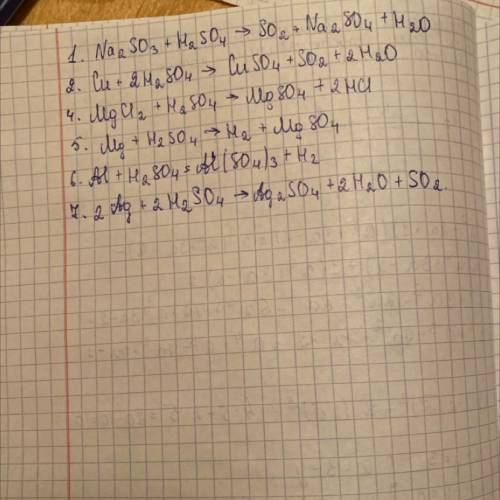 1. Na2SO3 + H2SO4 → SO2 + Na2SO4 + H2O
2. Cu + 2H2SO4 → CuSO4 + SO2 + 2H2O
4. MgCl2 + H2SO4 → MgSO4 + 2HCl
5. Mg + H2SO4 → H2 + MgSO4
6. Al + H2SO4 = Al(SO4)3 + H2
7. 2Ag + 2H2SO4 → Ag2SO4 + 2H2O + SO2.